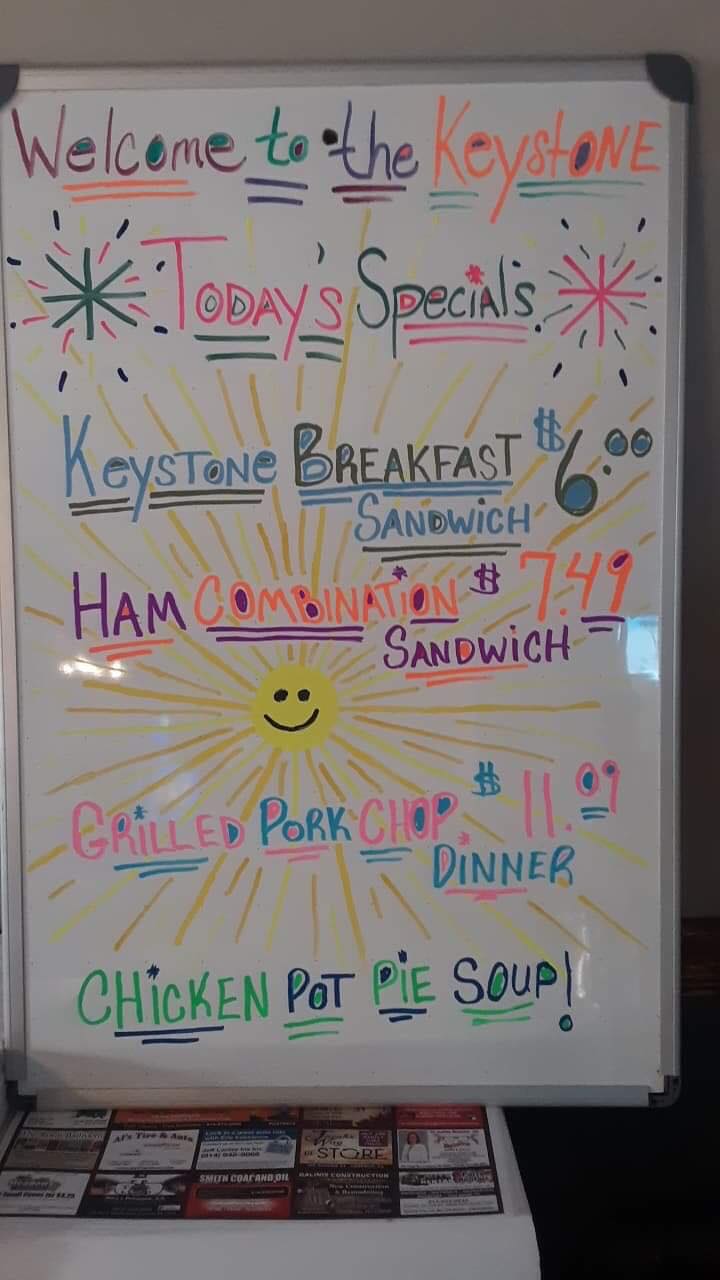 Welcome to the KeystoNE
Today's Specials
Keystone Breakfast $6.00
Sandwich
Ham Combination $7.49
Sandwich
Grilled Pork Chop $11.09
Dinner
Chicken Pot Pie Soup!
Al's Tire & Auto
STORE
SMITH COAL AND OIL
CONSTRUCTION